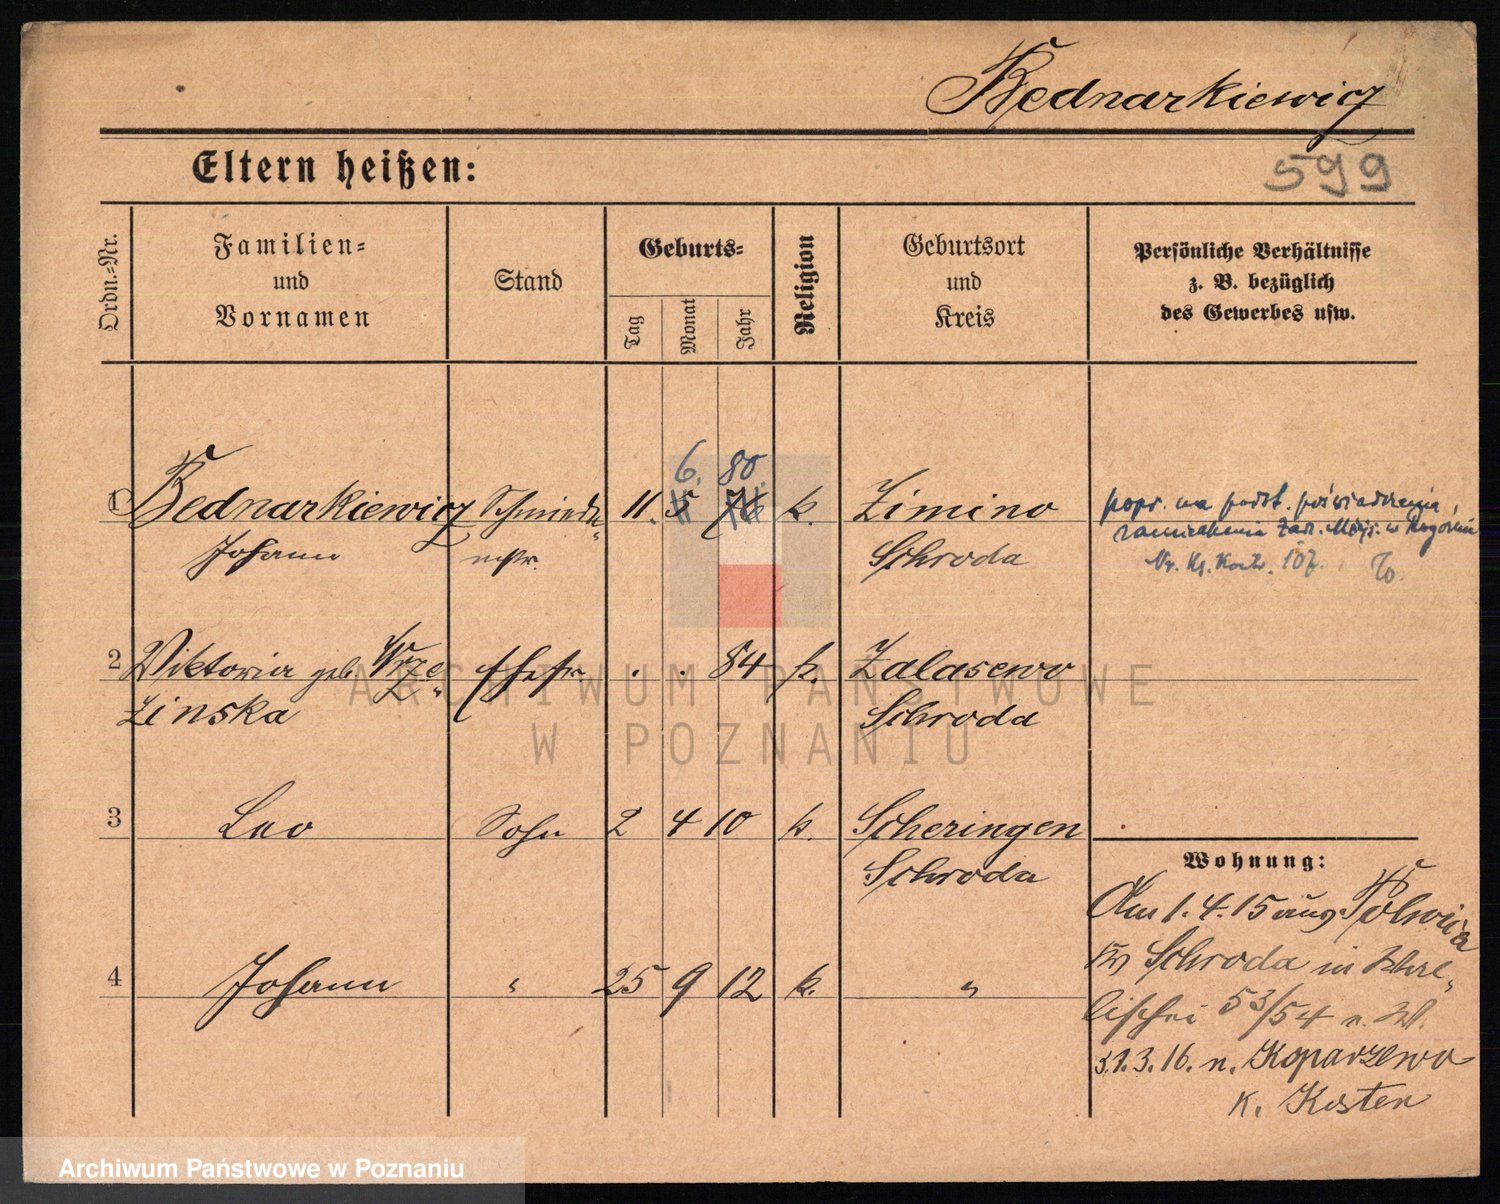 Bednarkiewicz
Eltern heißen:
599
Ordn.=Nr.
Familien=
und
Vornamen
Stand
Geburts=
Tag
Monat
Jahr
Religion
Geburtsort
und
Kreis
Persönliche Verhältnisse
z. B. bezüglich
des Gewerbes usw.
6. 80.
1 Bednarkiewicz Schmiede„ 11. 5 k. Zimino
Johann mstr. Schroda
popr. na podst. poświadczenia
zamieszkania Zarz. Miejs. w
Nr.
2 Viktoria geb. Wrze„ Ehefr. . . 84 k. Zalasewo
zinska Schroda
3 Leo Sohn 2 4 10 k. Scheringen
Schroda
4 Johann " 25 9 12 k. "
Wohnung:
Am 1.4.15 aus Polwica
Kr Schroda in Wal„
lischei 53/54 n. W.
31.3.16. n. Koparzewo
K. Kosten
ARCHIWUM PAŃSTWOWE
W POZNANIU
Archiwum Państwowe w Poznaniu